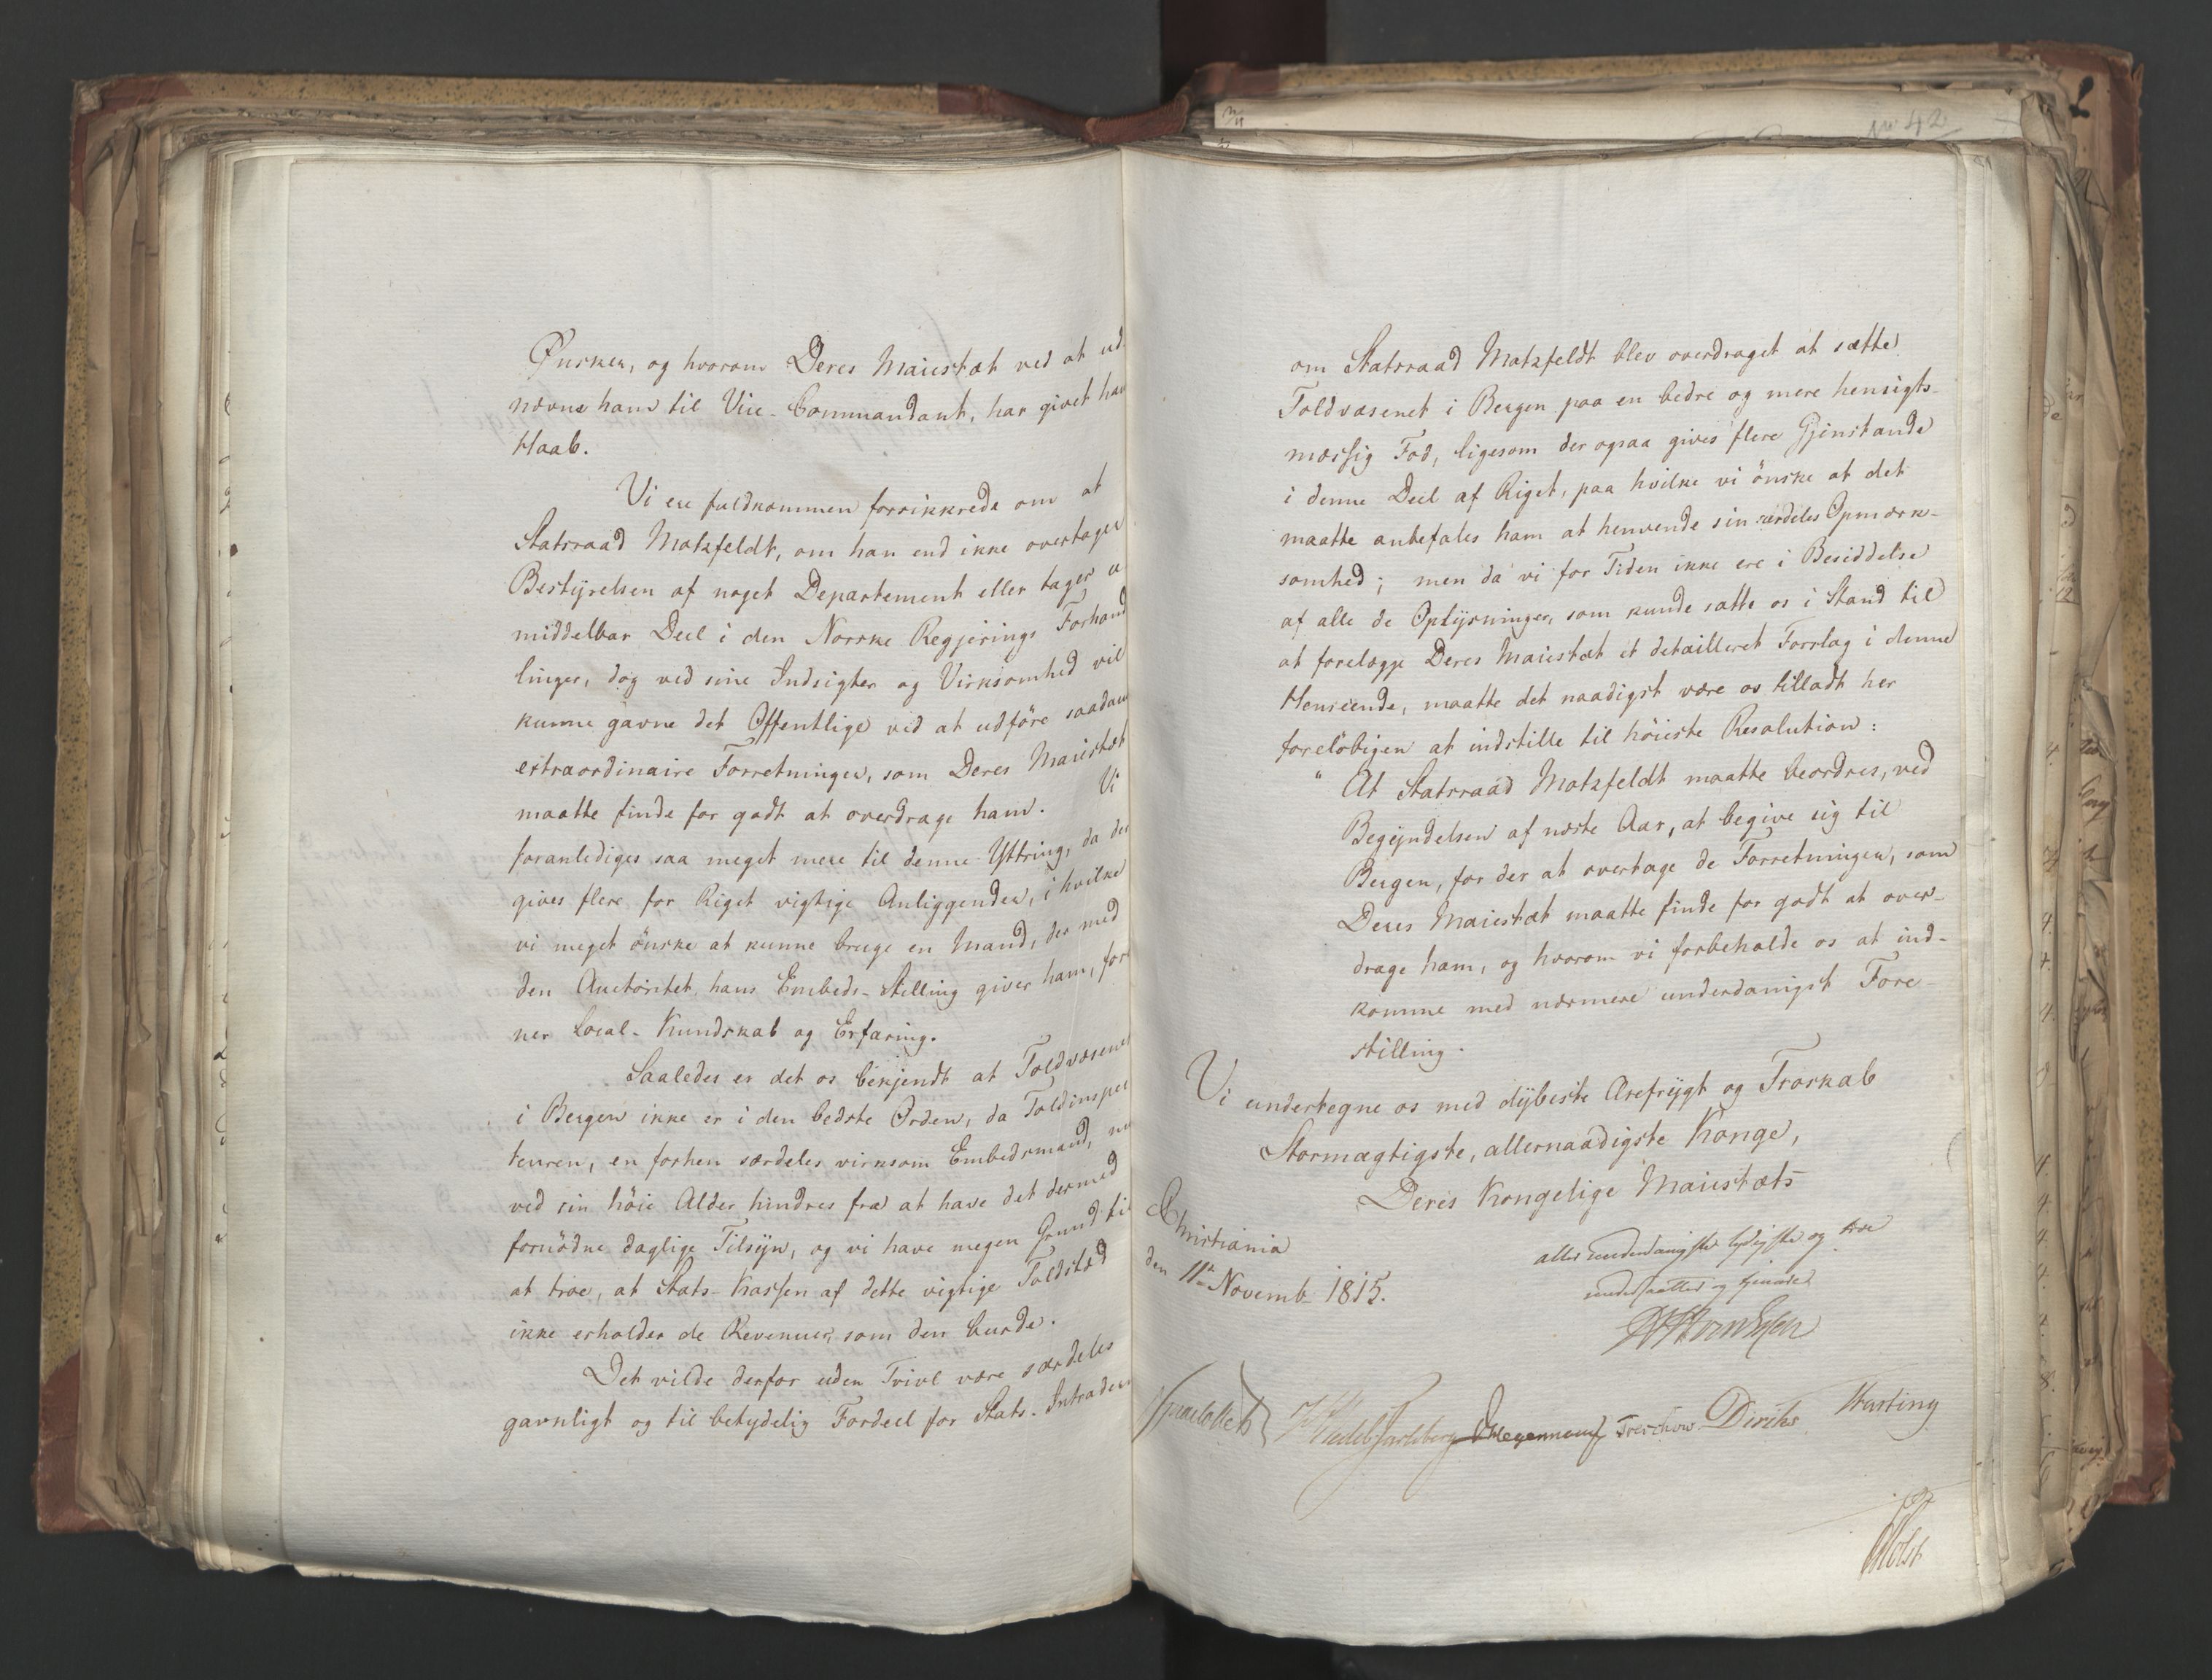 Ønsker, og hvorom Deres Maiestæt ved at ud
nævne ham til Vice-Commandant, har givet ham
Haab.
Vi ere fuldkommen forsikkrede om at
Statsraad Motzfeldt, om han end ikke overtager
Bestyrelsen af noget Departement eller tager u
middelbar Deel i den Norske Regjerings Forhand
linger, dog ved sine Indsigter og Virksomhed vil
kunne gavne det Offentlige ved at udföre saadanne
extraordinaire Forretninger, som Deres Maiestæt
maatte finde for godt at overdrage ham. Vi
foranlediges saa meget mere til denne Yttring, da der
gives flere for Riget vigtige Anliggender, i hvilke
vi meget önske at kunne bruge en Mand, der med
den Auctoritet hans Embeds-Stilling giver ham, fore
ner Local-Kundskab og Erfaring.
Saaledes er det os bekjendt at Toldvæsenet
i Bergen ikke er i den bedste Orden, da Toldinspec
teuren, en forhen særdeles virksom Embedsmand, nu
ved sin höie Alder hindres fra at have det dermed
fornödne daglige Tilsyn, og vi have megen Grund til
at troe, at Stats-Kassen af dette vigtige Toldsted
ikke erholder de Revenuer, som den burde.
Det vilde derfor uden Tvivl være særdeles
gavnligt og til betydelig Fordeel for Stats-Intraderne
No 42
om Statsraad Motzfeldt blev overdraget at sætte
Toldvæsenet i Bergen paa en bedre og mere hensigts-
mæssig Fod, ligesom der ogsaa gives flere Gjenstande
i denne Deel af Riget, paa hvilke vi önske at det
maatte anbefales ham at henvende sin særdeles Opmærk-
somhed; men da vi for Tiden ikke ere i Besiddelse
af alle de Oplysninger, som kunde sætte os i Stand til
at forelægge Deres Maiestæt et detailleret Forslag i denne
Henseende, maatte det naadigst være os tilladt her
forelöbigen at indstille til höieste Resolution:
" At Statsraad Motzfeldt maatte beordres, ved
Begyndelsen af næste Aar, at begive sig til
Bergen, for der at overtage de Forretninger, som
Deres Maiestæt maatte finde for godt at over-
drage ham, og hvorom vi forbeholde os at ind-
komme med nærmere underdanigst Fore-
stilling.
Vi undertegne os med dybeste Ærefrygt og Troskab
Stormægtigste, allernaadigste Konge,
Deres Kongelige Maiestæts
Christiania
den 11te Novemb 1815.
allerunderdanigste lydigste og troe
undersaatter og tjenere
Sommerhjelm
Wedel Jarlsberg Hegermann Treschow Diriks Krafting
Holst